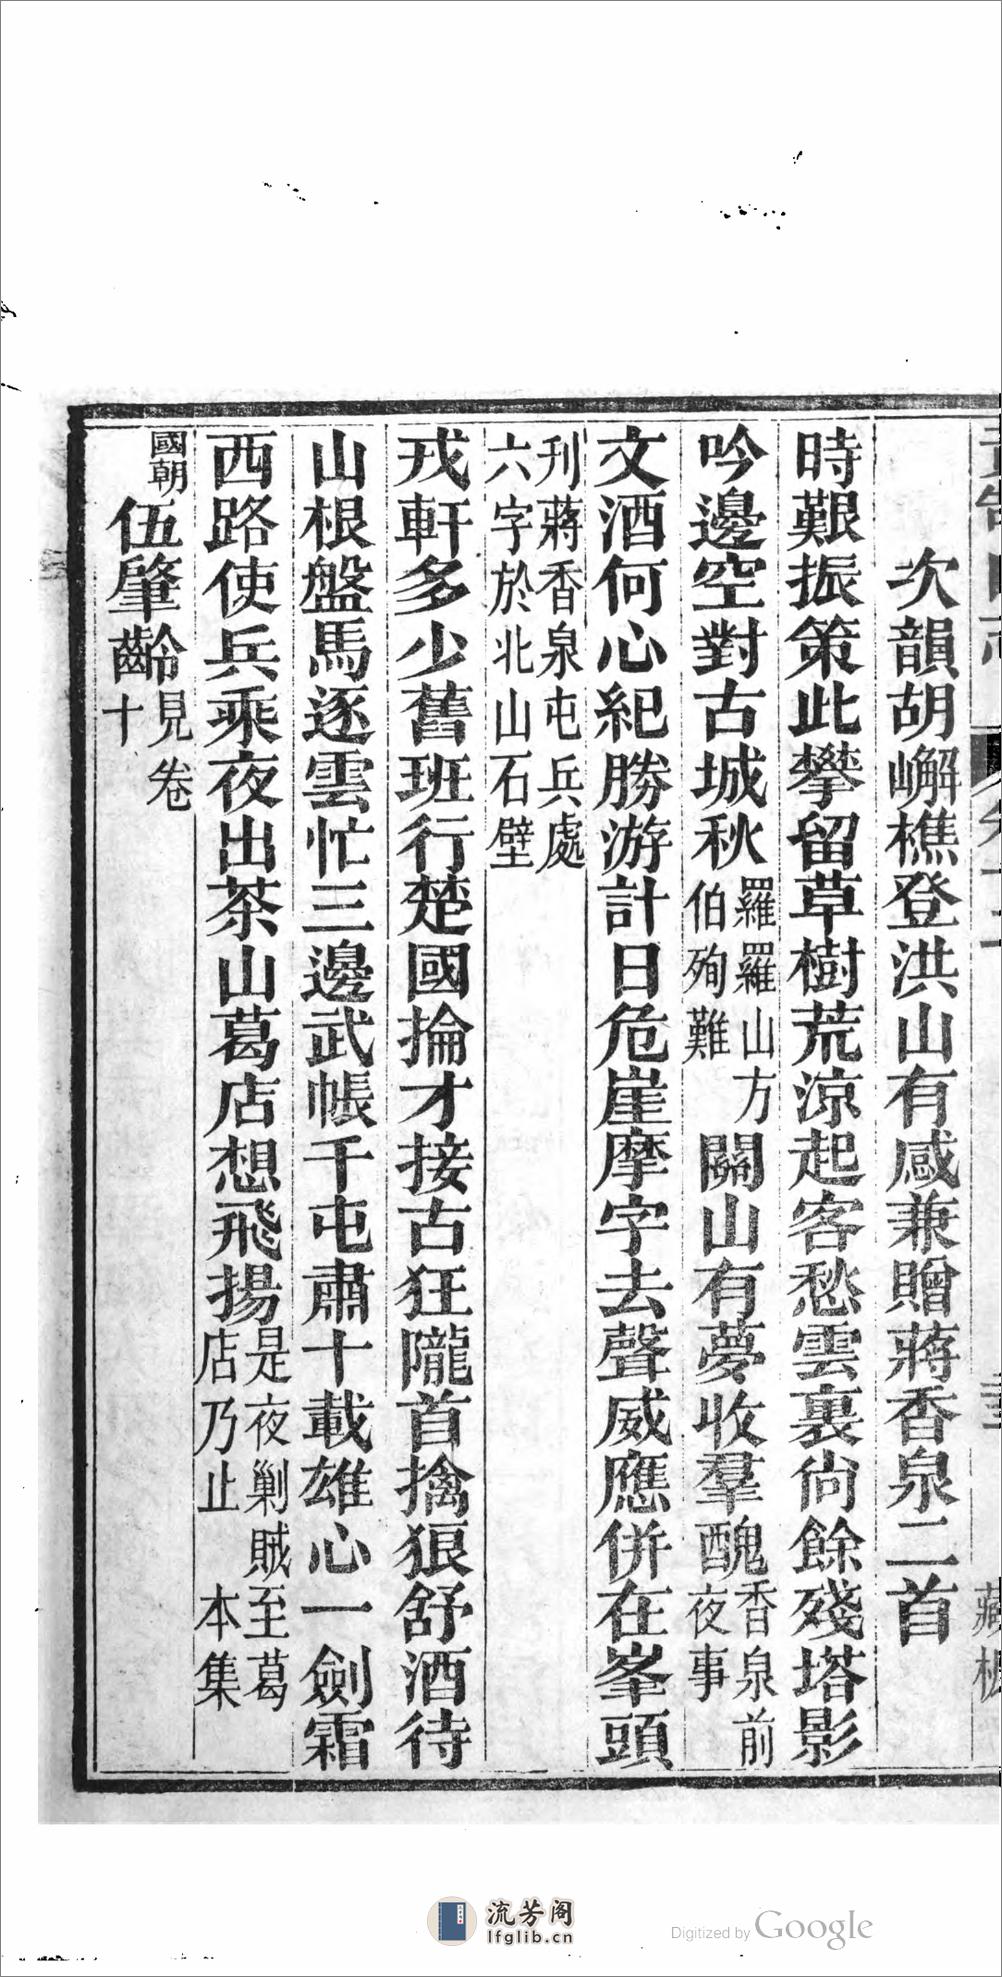 次韻胡嶰樵登洪山有感兼贈蔣香泉二首
時艱振策此攀留草樹荒涼起客愁雲裏尙餘殘塔影
吟邊空對古城秋羅羅山方伯殉難關山有夢收羣醜香泉前夜事
文酒何心紀勝游計日危崖摩字去聲威應併在峯頭
刋蔣香泉屯兵處六字於北山石壁
戎軒多少舊班行楚國掄才接古狂隴首擒狼舒酒待
山根盤馬逐雲忙三邊武帳千屯肅十載雄心一劍霜
西路使兵乘夜出茶山葛店想飛揚是夜剿賊至葛店乃止 本集
國朝伍肇齡見卷十
流芳阁
lfglib.cn
Digitized by Google